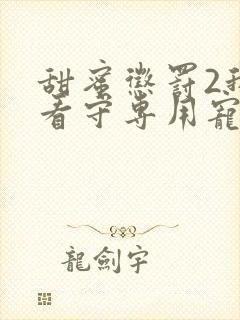 甜蜜懲罰2我
看守専用寵
龍劍宇